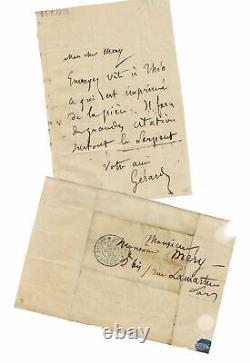 Mon cher Mery
Envoyez vite à Théo
ce qui est imprimé
de la pièce. Il fera
de grandes citations
surtout le Serpent
Votre ami
Gérard
Monsieur
Monsieur Méry
bis, rue Lamartine
Paris